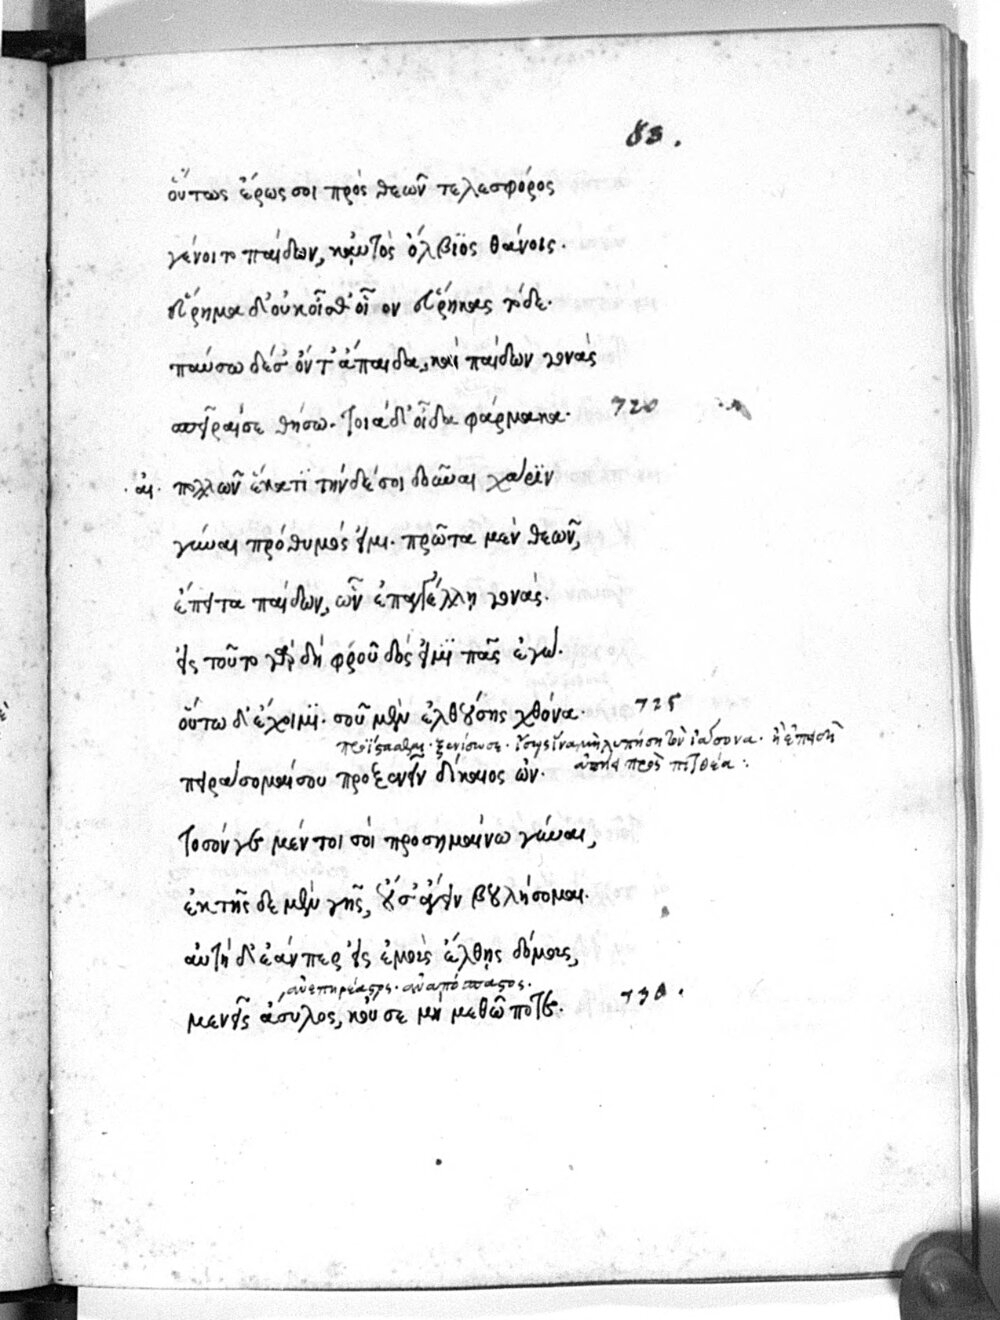 83.
οὕτως ἔρως σοι πρὸς θεῶν τελεσφόρος
γένοιτο παίδων, καὐτὸς ὄλβιος θάνοις.
εὕρημα δ' οὐκ οἶσθ' οἷον εὕρηκας τόδε.
παύσω δέ σ' ὄντ' ἄπαιδα, καὶ παίδων γονὰς
σπεῖραί σε θήσω. τοιάδ' οἶδα φάρμακα. 720
αι. πολλῶν ἕκατι τήνδέ σοι δοῦναι χάριν
γύναι πρόθυμός εἰμι. πρῶτα μὲν θεῶν,
ἔπειτα παίδων, ὧν ἐπαγγέλλῃ γονάς.
εἰς τοῦτο γὰρ δὴ φροῦδός εἰμι πᾶς ἐγώ.
οὕτω δ' ἔχει μοι. σοῦ μὲν ἐλθούσης χθόνα. 725
ξενίσω σε. ἴσως ἵνα μὴ λυπήσῃ τὸν ἰάσονα.
πειράσομαί σου προξενεῖν δίκαιος ὤν. πρὸς πιτθέα.
τοσόνγε μέντοι σοὶ προσημαίνω γύναι,
ἐκ τῆς δε μὲν γῆς, οὔ σ' ἄγειν βουλήσομαι.
αὐτὴ δ' ἐάνπερ εἰς ἐμοὺς ἔλθῃς δόμους,
ἀνεπηρέαστος. ἀναπόσπαστος.
μενεῖς ἄσυλος, κοὐ σε μὴ μεθῶ ποτε. 730.